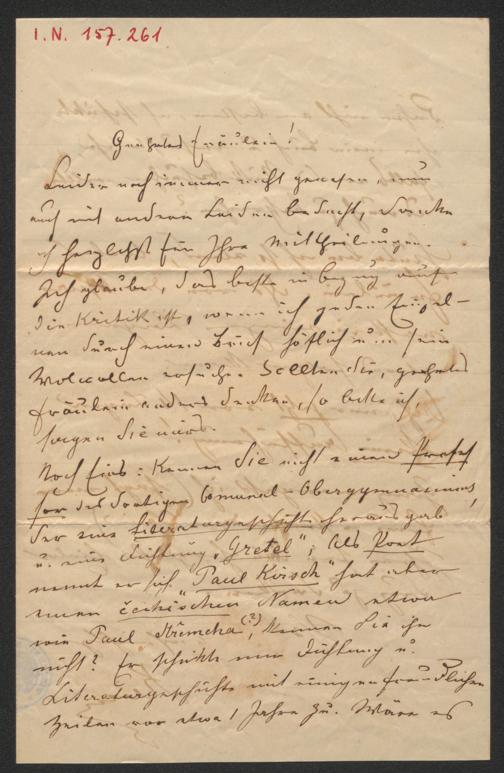 I.N. 157.261
Geehrtes Fräulein!
Leider noch immer nicht genesen, nun
auch mit andern Leiden bedacht, danke
ich herzlichst für Ihre Mittheilungen.
Ich glaube, das beste in bezug auf
die Kritik ist, wenn ich jeden Einzel-
nen durch einen Brief höflich u. um sein
Wolwollen ersuche. Sollten Sie, geehrtes
Fräulein anders denken, so bitte ich,
sagen Sie mirs.
Noch Eins: Kennen Sie nicht einen Profes
sor des dortigen Comunal-Obergymnasiums,
der eine Literaturgeschichte herausgab
u. eine Dichtung „Gretel"; als Poet
nennt er sich „Paul Kirsch" hat aber
einen čechischen Namen etwa
wie Paul Křemcha (?), kennen Sie ihn
nicht? Er schickte mir Dichtung u.
Literaturgeschichte mit einigen freundlichen
Zeilen vor etwa 1 Jahre zu. Wäre es